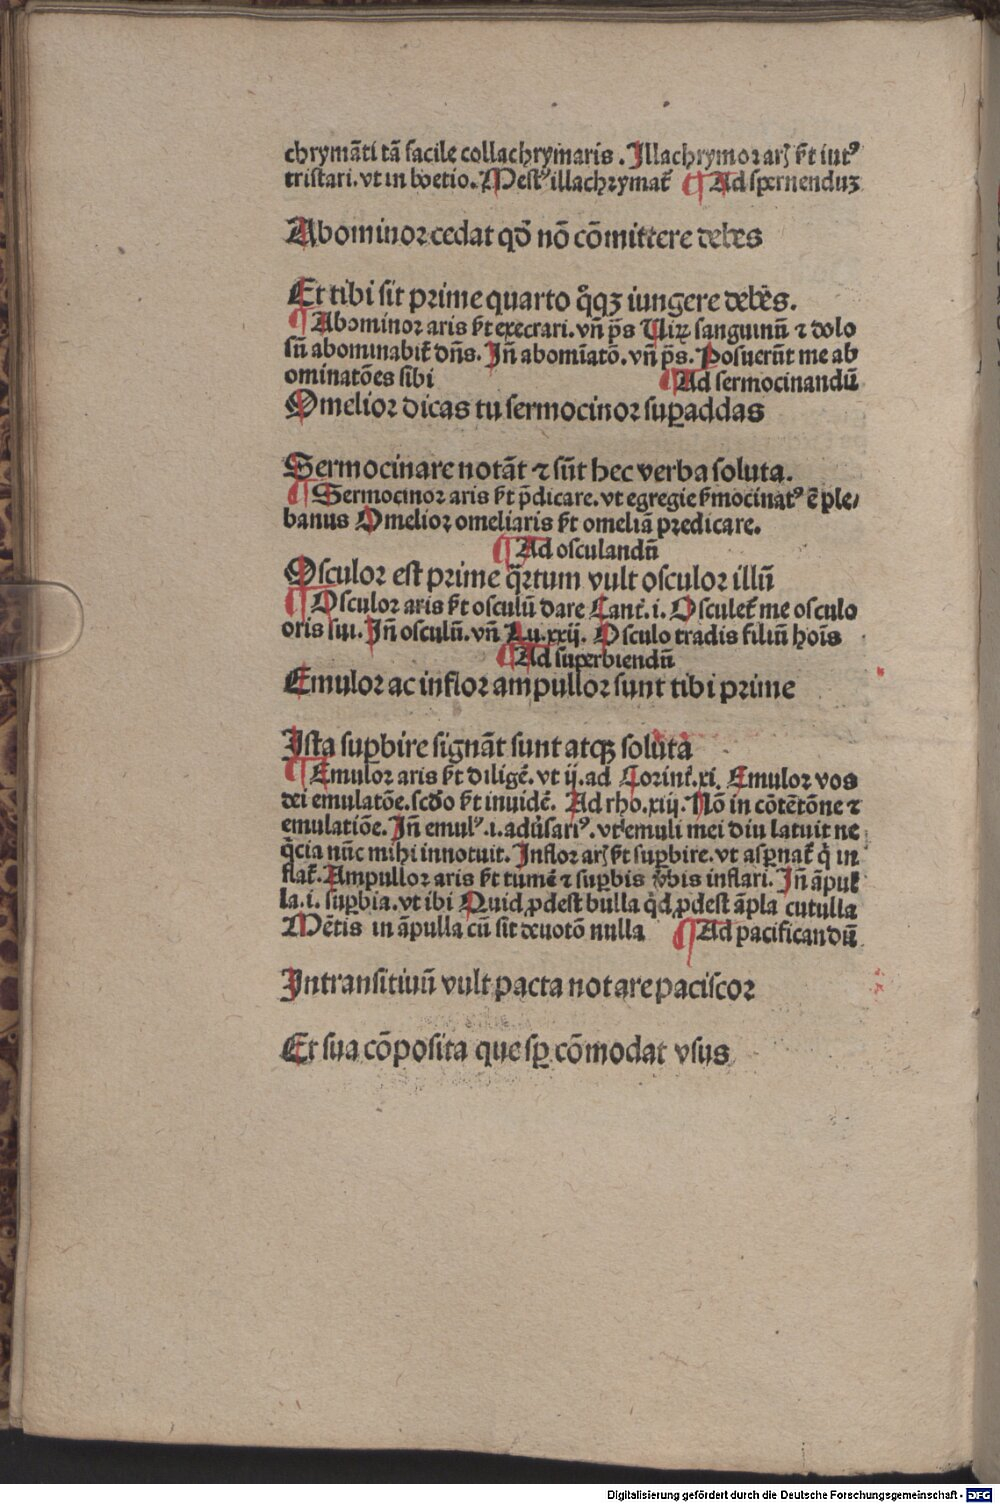 chrymāti tā facile collachrymaris. Illachrymor arꝭ ẜt iut᷒
tristari. vt in boetio. Mest᷒ illachrymat᷑ ¶ Ad spernenduꝫ
Abominor cedat qđ nō cōmittere debes
Et tibi sit prime quarto q̊qꝫ iungere debēs.
¶ Abominor aris ẜt execrari. vn̄ p̄s Uiꝝ sanguinū ⁊ dolo
sū abominabit᷑ dn̄s. In̄ abomīatō. vn̄ p̄s. Posuerūt me ab
ominatōes sibi ¶ Ad sermocinandū
Omelior dicas tu sermocinor suꝑaddas
Sermocinare notāt ⁊ sūt hec verba soluta.
¶ Sermocinor aris ẜt p̄dicare. vt egregie ẜmocinat᷒ ē ple/
banus Omelior omeliaris ẜt omeliā predicare.
¶ Ad osculandū
Osculor est prime q̈rtum vult osculor illū
¶ Osculor aris ẜt osculū dare Cant᷑. i. Osculet᷑ me osculo
oris sui. In̄ osculū. vn̄ Lu. xxij. Osculo tradis filiū hoīs
¶ Ad superbiendū
Emulor ac inflor ampullor sunt tibi prime
Ista suꝑbire signāt sunt atqꝫ soluta
¶ Emulor aris ẜt diligē. vt ij. ad Corint᷑. xi. Emulor vos
dei emulatōe. scđo ẜt inuidē. Ad rho. xiij. Nō in cōtētōne ⁊
emulatiōe. In̄ emul᷒ .i. adu̓sari᷒. vt emuli mei diu latuit ne
q̄cia nūc mihi innotuit. Inflor arꝭ ẜt suꝑbire. vt asꝑnat᷑ q̇ in
flat᷑. Ampullor aris ẜt tumē ⁊ suꝑbis v̓bis inflari. In̄ āpul
la. i. suꝑbia. vt ibi Quid ꝓdest bulla q̇d ꝓdest āpla cutulla
Mētis in āpulla cū sit deuotō nulla ¶ Ad pacificandū
Intransitiuū vult pacta notare paciscor
Et sua cōposita que sꝑ cōmodat vsus
Digitalisierung gefördert durch die Deutsche Forschungsgemeinschaft - DFG